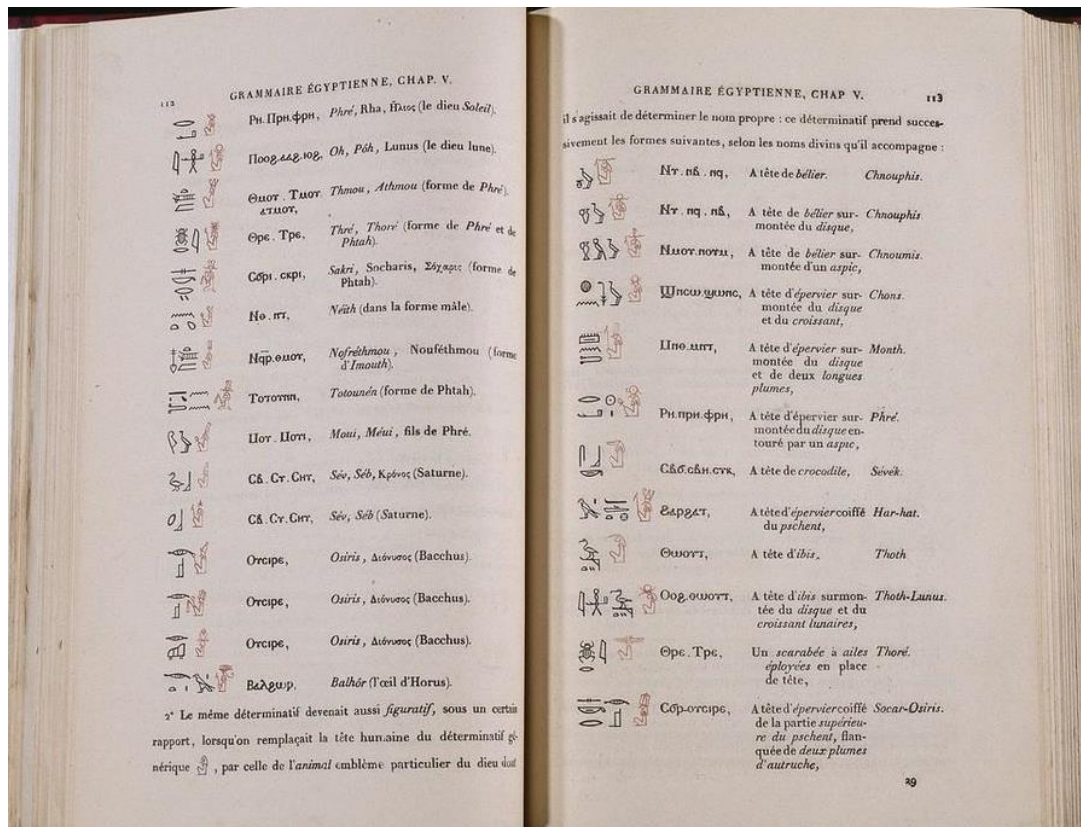 112
GRAMMAIRE ÉGYPTIENNE, CHAP. V.
Ρн. Πρн. φρн, Phré, Rha, Ἥλιος (le dieu Soleil).
Ποοϩ. ⲁⲁϩ. ⲓⲟϩ, Oh, Póh, Lunus (le dieu lune).
Ⲑⲙⲟⲩ. Ⲧⲙⲟⲩ Thmou, Athmou (forme de Phré).
ⲁⲧⲙⲟⲩ,
Ⲑⲣⲉ. Ⲧⲣⲉ, Thré, Thoré (forme de Phré et de
Phtah).
Ⲥϭⲣⲓ. ⲥⲕⲣⲓ, Sakri, Socharis, Σόχαρις (forme de
Phtah).
Ⲛⲑ. ⲛⲧ, Neith (dans la forme mâle).
Ⲛϥⲣ.ⲑⲙⲟⲩ, Nofréthmou, Nouféthmou (forme
d'Imouth).
Ⲧⲟⲧⲟⲩⲛⲛ, Totounén (forme de Phtah).
Ⲙⲟⲩ. Ⲙⲟⲩⲓ, Moui, Méui, fils de Phré.
Ⲥⲃ. Ⲥⲩ. Ⲥⲏⲩ, Sév, Séb, Κρόνος (Saturne).
Ⲥⲃ. Ⲥⲩ. Ⲥⲏⲩ, Sév, Séb (Saturne).
Ⲟⲩⲥⲓⲣⲉ, Osiris, Διόνυσος (Bacchus).
Ⲟⲩⲥⲓⲣⲉ, Osiris, Διόνυσος (Bacchus).
Ⲟⲩⲥⲓⲣⲉ, Osiris, Διόνυσος (Bacchus).
Ⲃⲁⲗϩⲱⲣ, Balhôr (l'œil d'Horus).
2° Le même déterminatif devenait aussi figuratif, sous un certain
rapport, lorsqu'on remplaçait la tête humaine du déterminatif gé-
nérique , par celle de l'animal emblème particulier du dieu dont
GRAMMAIRE ÉGYPTIENNE, CHAP V.
113
il s'agissait de déterminer le nom propre : ce déterminatif prend succes-
sivement les formes suivantes, selon les noms divins qu'il accompagne :
Ⲛⲩ. ⲛⲃ. ⲛϥ, A tête de bélier. Chnouphis.
Ⲛⲩ. ⲛϥ. ⲛⲃ, A tête de bélier sur- Chnouphis.
montée du disque,
Ⲛⲙⲟⲩ.ⲛⲟⲩⲙ, A tête de bélier sur- Chnoumis.
montée d'un aspic,
Ϣⲛⲥⲱ.ϣⲱⲛⲥ, A tête d'épervier sur- Chons.
montée du disque
et du croissant,
Ⲙⲛⲑ.ⲙⲛⲧ, A tête d'épervier sur- Month.
montée du disque
et de deux longues
plumes,
Ⲣⲏ.ⲡⲣⲏ.ⲫⲣⲏ, A tête d'épervier sur- Phré.
montée du disque en-
touré par un aspic,
Ⲥⲃϭ.ⲥⲃⲏ.ⲥⲩⲕ, A tête de crocodile, Sévek.
Ϩⲁⲣϩⲁⲧ, A tête d'épervier coiffé Har-hat.
du pschent,
Ⲑⲱⲟⲩⲧ, A tête d'ibis, Thoth
Ⲟⲟϩ.ⲑⲱⲟⲩⲧ, A tête d'ibis surmon- Thoth-Lunus.
tée du disque et du
croissant lunaires,
Ⲑⲣⲉ. Ⲧⲣⲉ, Un scarabée à ailes Thoré.
éployées en place
de tête,
Ⲥϭⲣ-ⲟⲩⲥⲓⲣⲉ, A tête d'épervier coiffé Socar-Osiris.
de la partie supérieu-
re du pschent, flan-
quée de deux plumes
d'autruche,
29